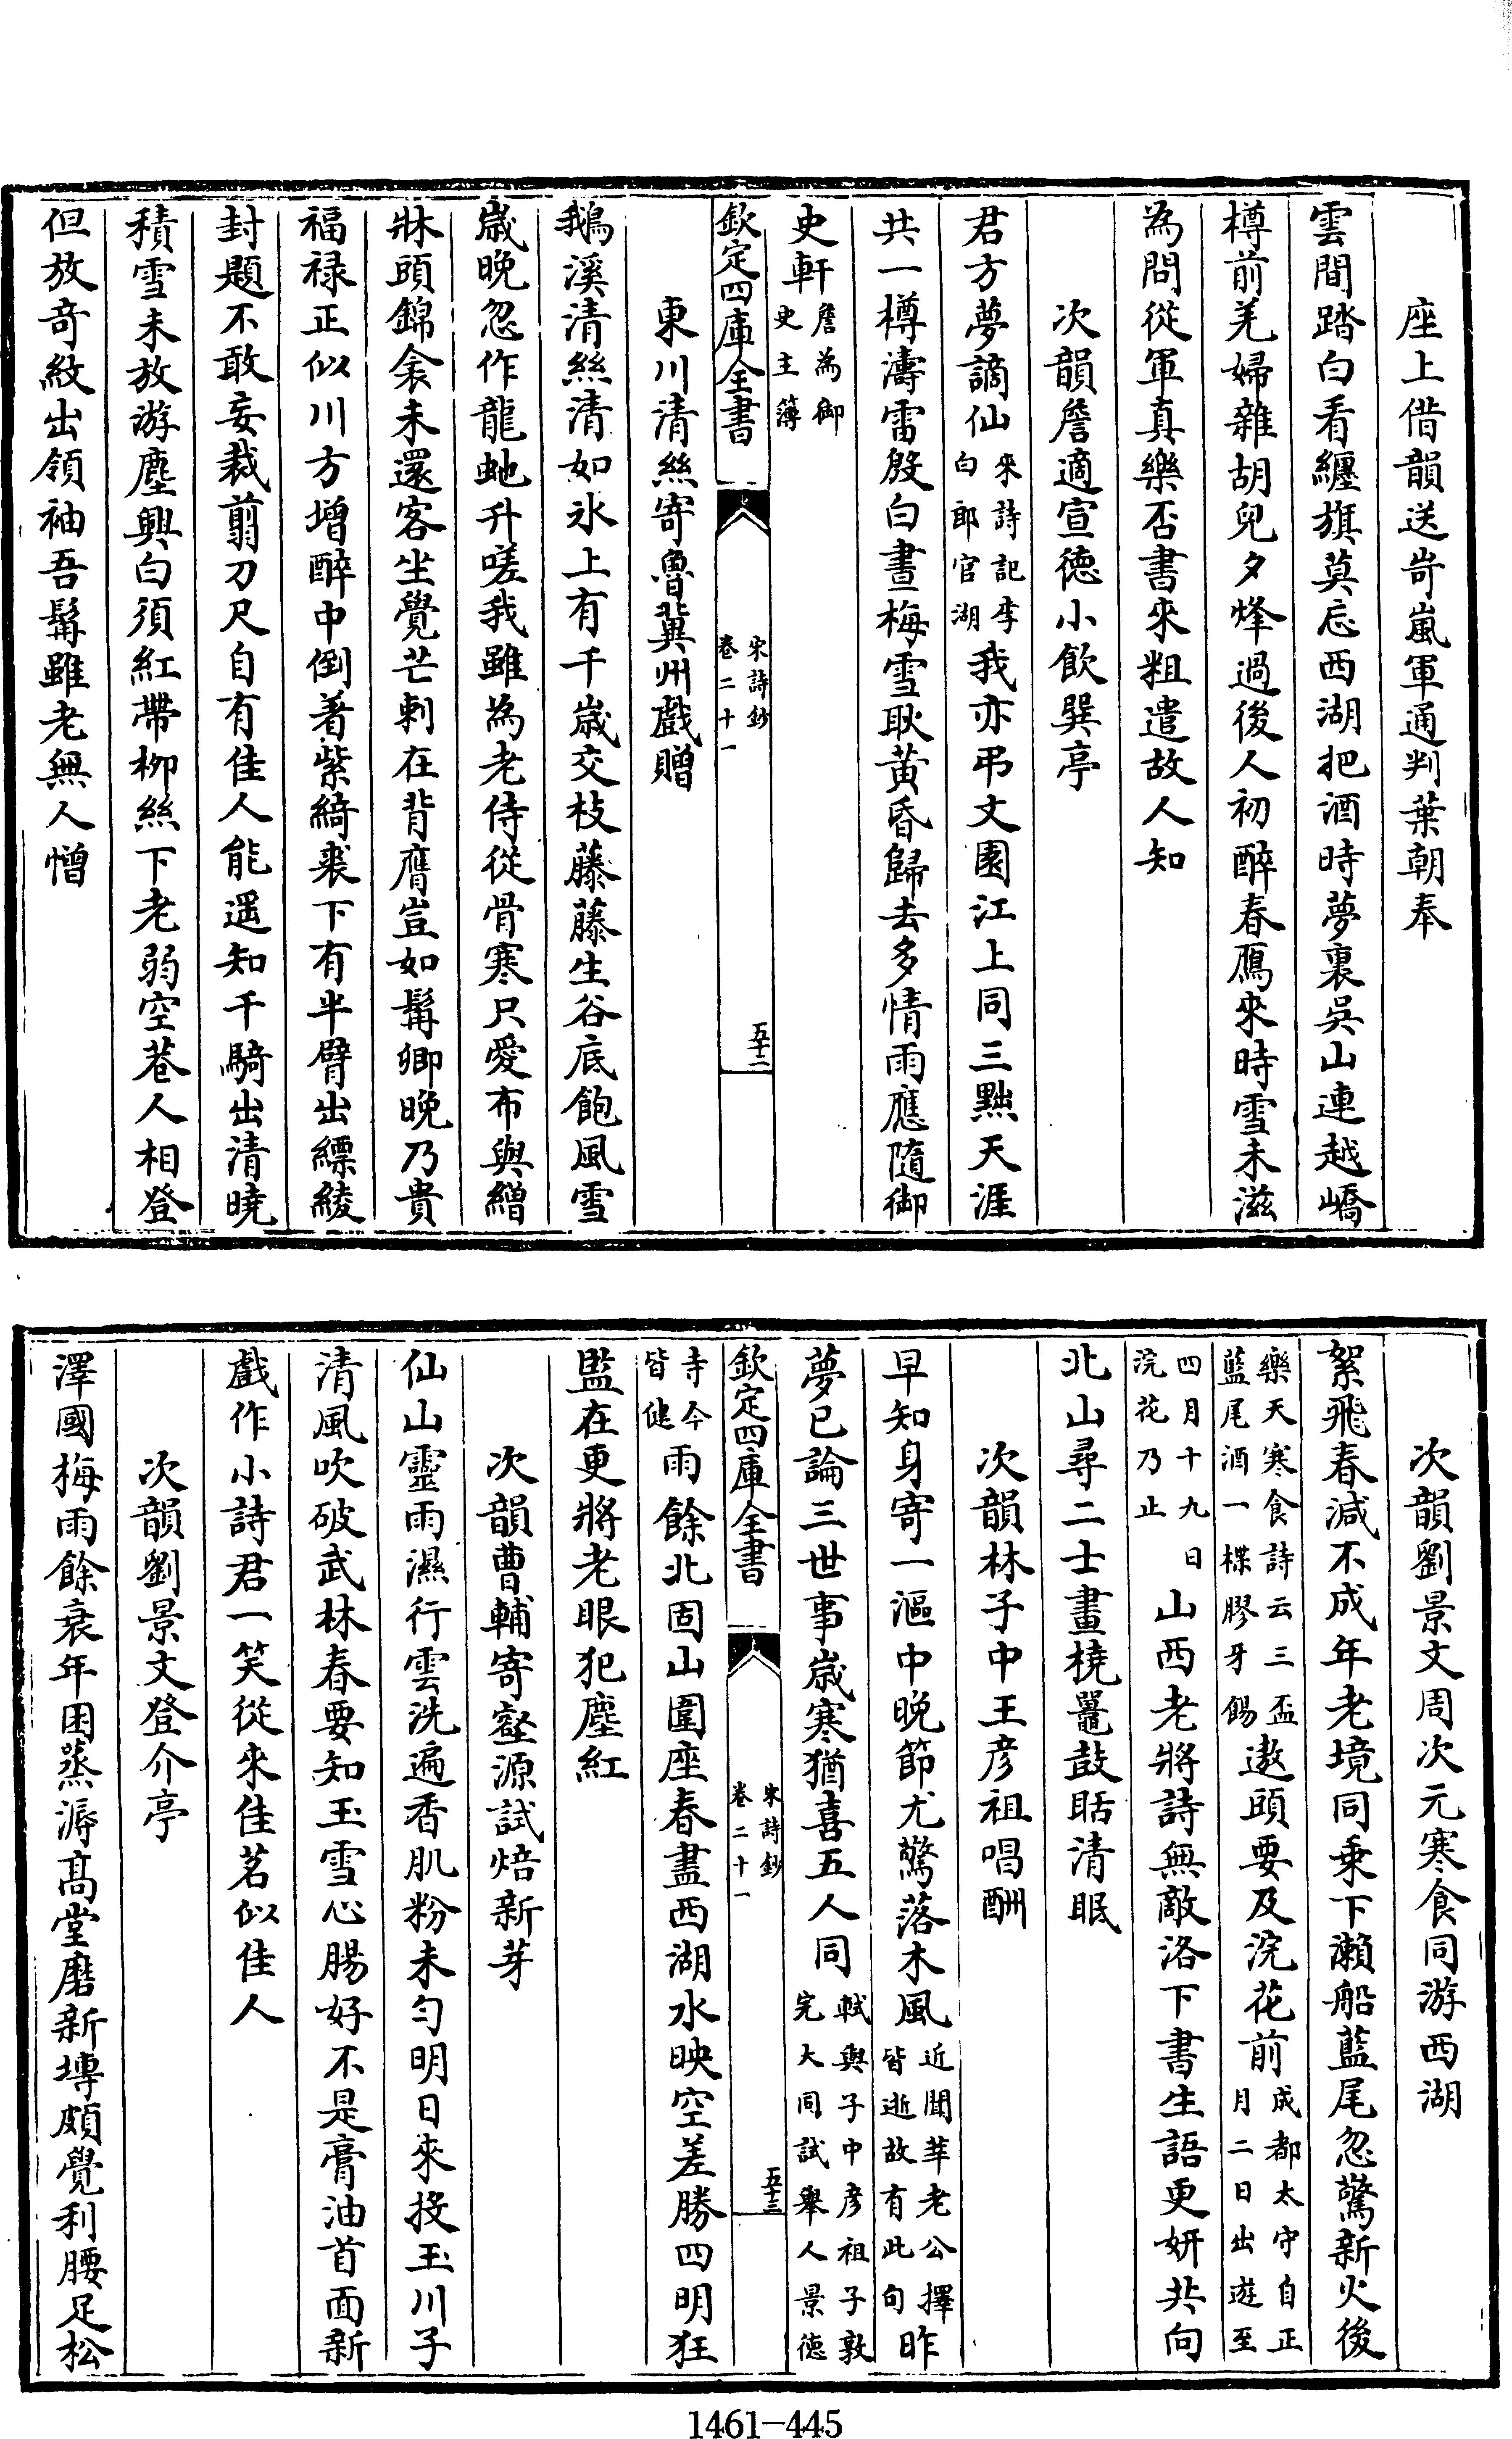 座上借韻送岢嵐軍通判葉朝奉
雲間踏白看纏旗莫忘西湖把酒時夢裏吳山連越嶠
樽前羌婦雜胡兒夕烽過後人初醉春鴈來時雪未滋
為問從軍真樂否書來粗遣故人知
次韻詹適宣德小飲巽亭
君方夢謫仙來詩記李白郎官湖我亦弔文園江上同三黜天涯
共一樽濤雷殷白晝梅雪耿黃昏歸去多情雨應隨御
史軒詹為御史主簿
欽定四庫全書 宋詩鈔 卷二十一 五十二
東川清絲寄魯冀州戲贈
鵝溪清絲清如冰上有千歲交枝藤藤生谷底飽風雪
歲晚忽作龍虵升嗟我雖為老侍從骨寒只愛布與繒
牀頭錦衾未還客坐覺芒刺在背膺豈如髯卿晚乃貴
福祿正似川方增醉中倒著紫綺裘下有半臂出縹綾
封題不敢妄裁翦刀尺自有佳人能遥知千騎出清曉
積雪未放游塵興白須紅帶柳絲下老弱空巷人相登
但放奇紋出領袖吾髯雖老無人憎
次韻劉景文周次元寒食同游西湖
絮飛春減不成年老境同乗下瀨船藍尾忽驚新火後
樂天寒食詩云三盃藍尾酒一楪膠牙餳遨頭要及浣花前成都太守自正月二日出遊至
四月十九日浣花乃止山西老將詩無敵洛下書生語更妍共向
北山尋二士畫橈鼉鼓聒清眠
次韻林子中王彦祖唱酬
早知身寄一漚中晚節尤驚落木風近聞莘老公擇皆逝故有此句昨
夢已論三世事歲寒猶喜五人同軾與子中彦祖子敦完夫同試舉人景德
寺今皆健雨餘北固山圍座春盡西湖水映空差勝四明狂
欽定四庫全書 宋詩鈔 卷二十一 五十三
監在更將老眼犯塵紅
次韻曹輔寄壑源試焙新芽
仙山靈雨濕行雲洗遍香肌粉未勻明日來投玉川子
清風吹破武林春要知玉雪心腸好不是膏油首面新
戲作小詩君一笑從來佳茗似佳人
次韻劉景文登介亭
澤國梅雨餘衰年困蒸溽高堂磨新塼頗覺利腰足松
1461-445